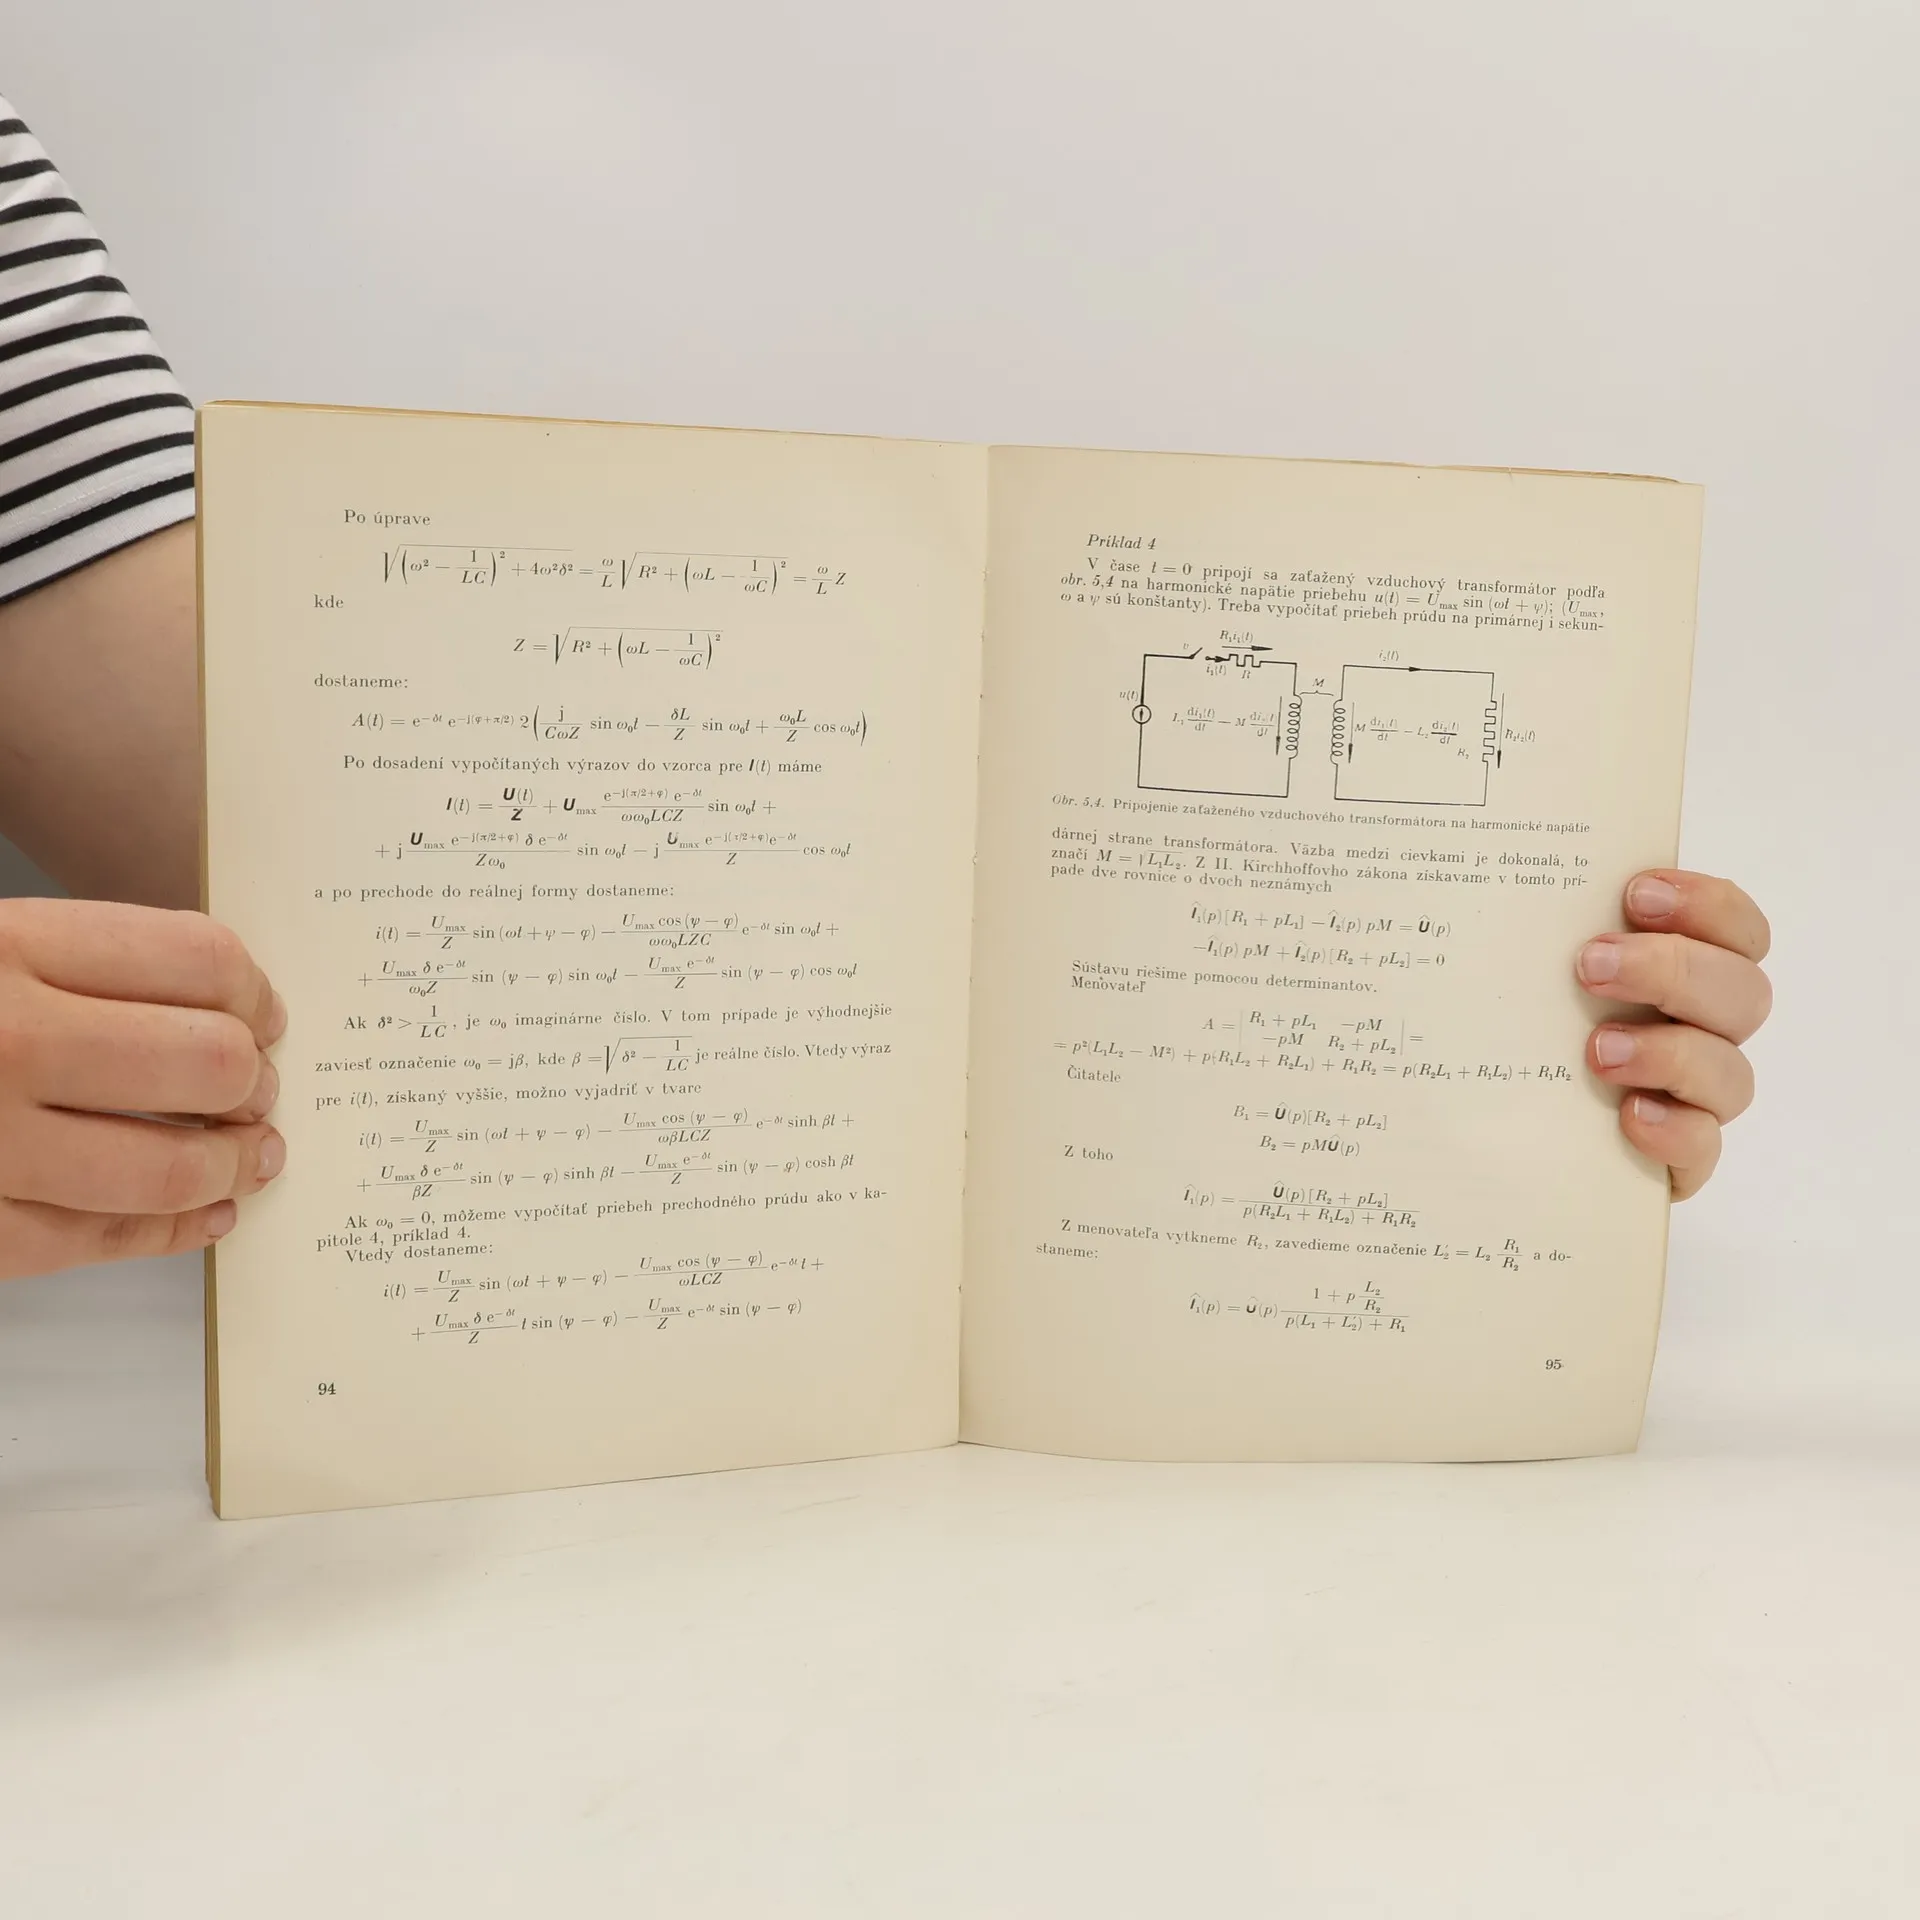 Po úprave
√((ω² − 1/(LC))² + 4ω²δ²) = ω/L √(R² + (ωL − 1/(ωC))²) = ω/L Z
kde
Z = √(R² + (ωL − 1/(ωC))²)
dostaneme:
A(t) = e^(−δt) e^(−j(φ+π/2)) 2 (j/(CωZ) sin ω₀t − δL/Z sin ω₀t + ω₀L/Z cos ω₀t)
Po dosadení vypočítaných výrazov do vzorca pre I(t) máme
I(t) = U(t)/Z + U_max e^(−j(π/2+φ)) e^(−δt)/(ωω₀LCZ) sin ω₀t +
+ j U_max e^(−j(π/2+φ)) δ e^(−δt)/(Zω₀) sin ω₀t − j U_max e^(−j(π/2+φ)) e^(−δt)/Z cos ω₀t
a po prechode do reálnej formy dostaneme:
i(t) = U_max/Z sin (ωt + ψ − φ) − U_max cos (ψ − φ)/(ωω₀LZC) e^(−δt) sin ω₀t +
+ U_max δ e^(−δt)/(ω₀Z) sin (ψ − φ) sin ω₀t − U_max e^(−δt)/Z sin (ψ − φ) cos ω₀t
Ak δ² > 1/(LC), je ω₀ imaginárne číslo. V tom prípade je výhodnejšie
zaviesť označenie ω₀ = jβ, kde β = √(δ² − 1/(LC)) je reálne číslo. Vtedy výraz
pre i(t), získaný vyššie, možno vyjadriť v tvare
i(t) = U_max/Z sin (ωt + ψ − φ) − U_max cos (ψ − φ)/(ωβLCZ) e^(−δt) sinh βt +
+ U_max δ e^(−δt)/(βZ) sin (ψ − φ) sinh βt − U_max e^(−δt)/Z sin (ψ − φ) cosh βt
Ak ω₀ = 0, môžeme vypočítať priebeh prechodného prúdu ako v ka-
pitole 4, príklad 4.
Vtedy dostaneme:
i(t) = U_max/Z sin (ωt + ψ − φ) − U_max cos (ψ − φ)/(ωLCZ) e^(−δt) t +
+ U_max δ e^(−δt)/Z t sin (ψ − φ) − U_max/Z e^(−δt) sin (ψ − φ)
94
Príklad 4
V čase t = 0 pripojí sa zaťažený vzduchový transformátor podľa
obr. 5,4 na harmonické napätie priebehu u(t) = U_max sin (ωt + ψ); (U_max,
ω a ψ sú konštanty). Treba vypočítať priebeh prúdu na primárnej i sekun-
R₁i₁(t)
v
i₁(t) R
i₂(t)
M
u(t)
L₁ di₁(t)/dt − M di₂(t)/dt
M di₁(t)/dt − L₂ di₂(t)/dt
R₂
R₂i₂(t)
Obr. 5,4. Pripojenie zaťaženého vzduchového transformátora na harmonické napätie
dárnej strane transformátora. Väzba medzi cievkami je dokonalá, to
značí M = √L₁L₂. Z II. Kirchhoffovho zákona získavame v tomto prí-
pade dve rovnice o dvoch neznámych
Î₁(p) [R₁ + pL₁] − Î₂(p) pM = Û(p)
−Î₁(p) pM + Î₂(p) [R₂ + pL₂] = 0
Sústavu riešime pomocou determinantov.
Menovateľ
A = | R₁ + pL₁ −pM |
| −pM R₂ + pL₂ | =
= p²(L₁L₂ − M²) + p(R₁L₂ + R₂L₁) + R₁R₂ = p(R₂L₁ + R₁L₂) + R₁R₂
Čitatele
B₁ = Û(p)[R₂ + pL₂]
B₂ = pMÛ(p)
Z toho
Î₁(p) = Û(p) [R₂ + pL₂]/(p(R₂L₁ + R₁L₂) + R₁R₂)
Z menovateľa vytkneme R₂, zavedieme označenie L₂′ = L₂ R₁/R₂ a do-
staneme:
Î₁(p) = Û(p) (1 + p L₂/R₂)/(p(L₁ + L₂′) + R₁)
95